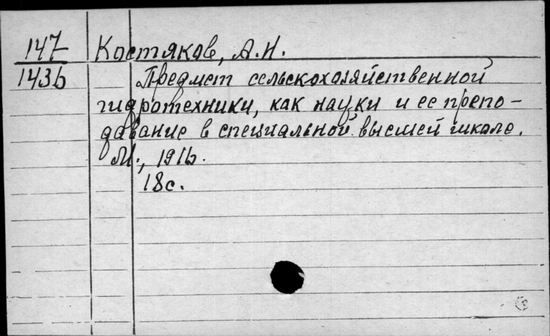 147 Костяков, А.Н.
1436 Предмет сельскохозяйственной
гидротехники, как науки и ее препо-
давание в специальной высшей школе.
М., 1916.
18с.